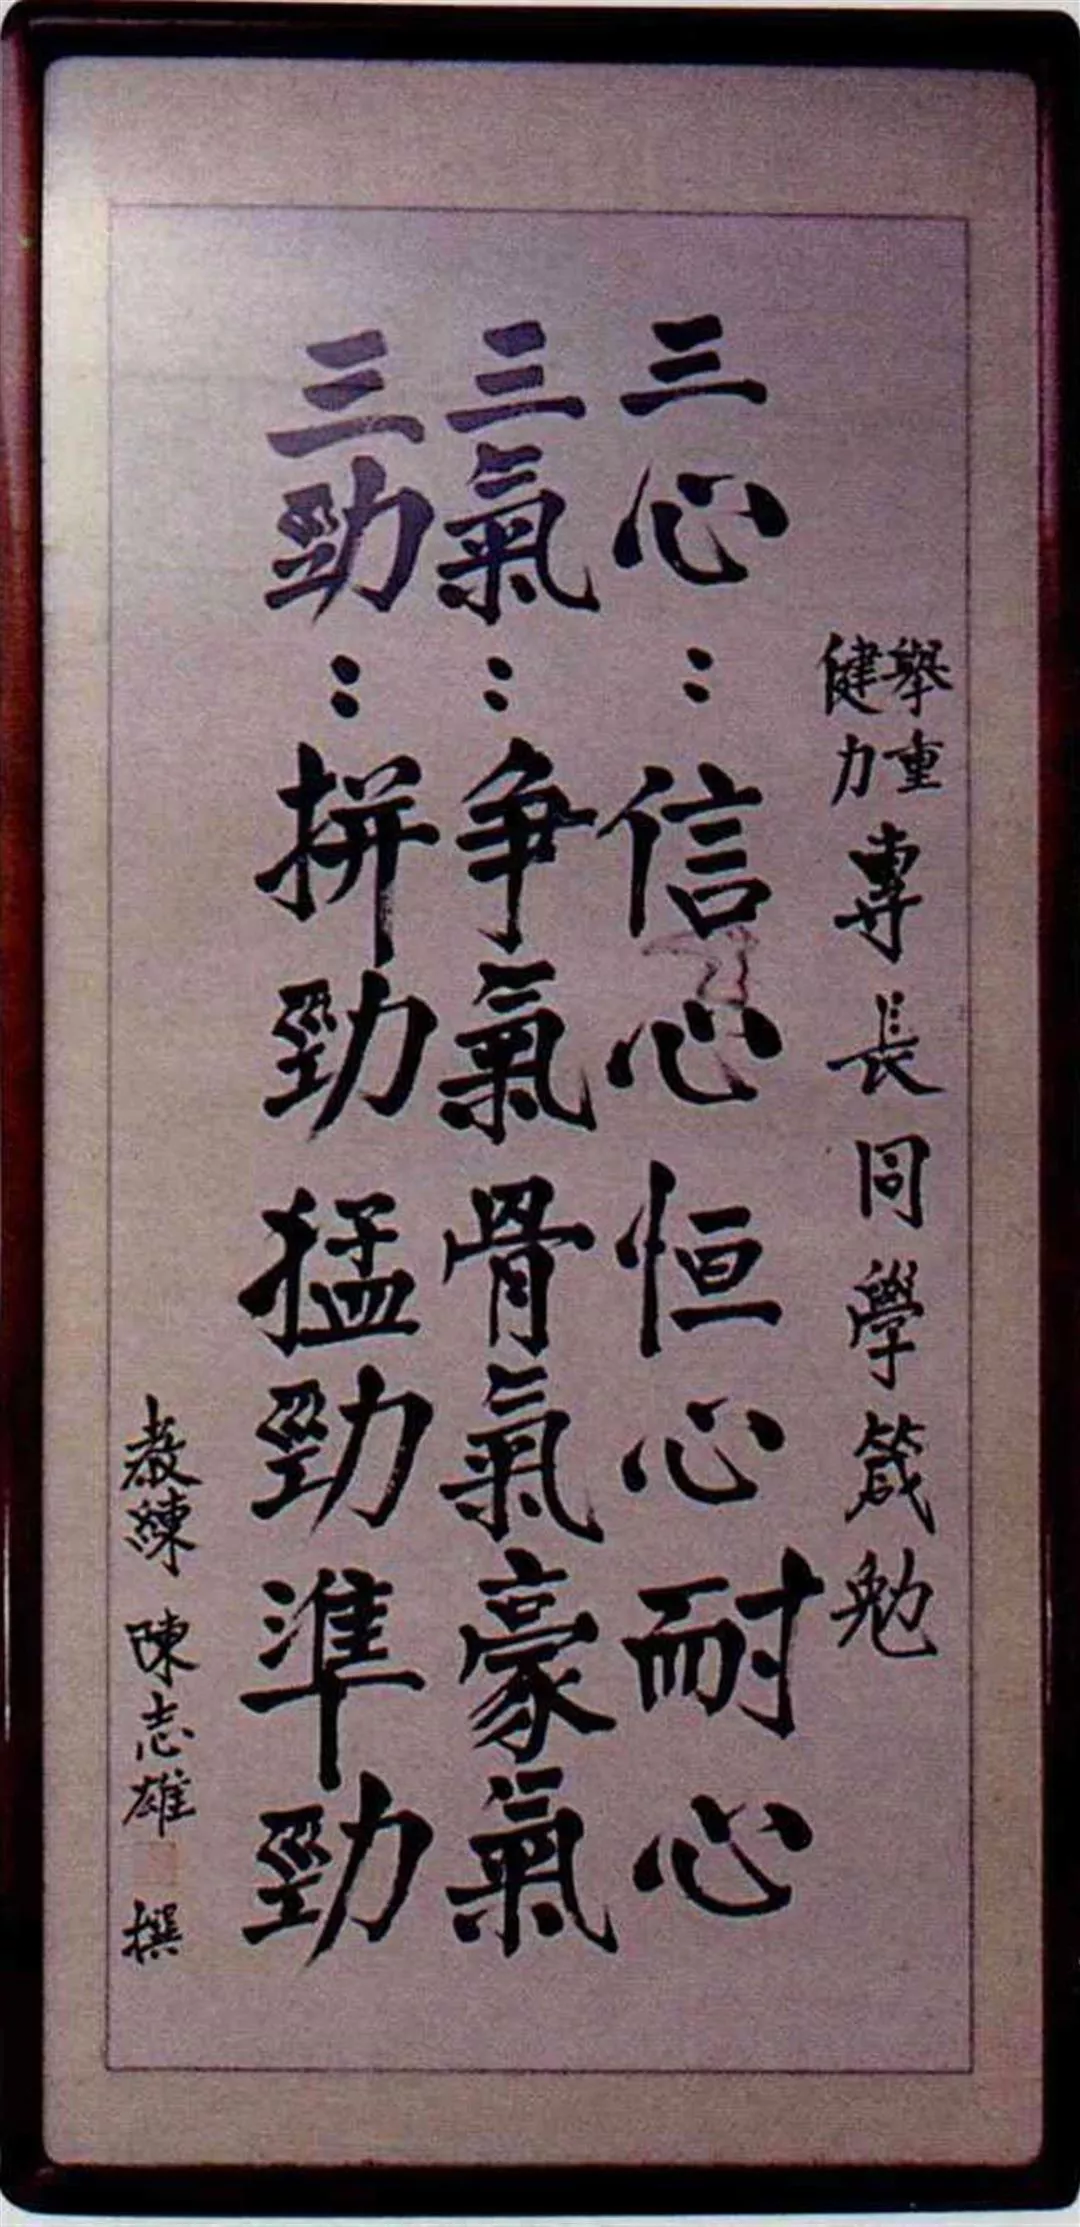 舉重健力專長同學箴勉
三心：信心恒心耐心
三氣：爭氣骨氣豪氣
三勁：拼勁猛勁準勁
教練 陳志雄 撰